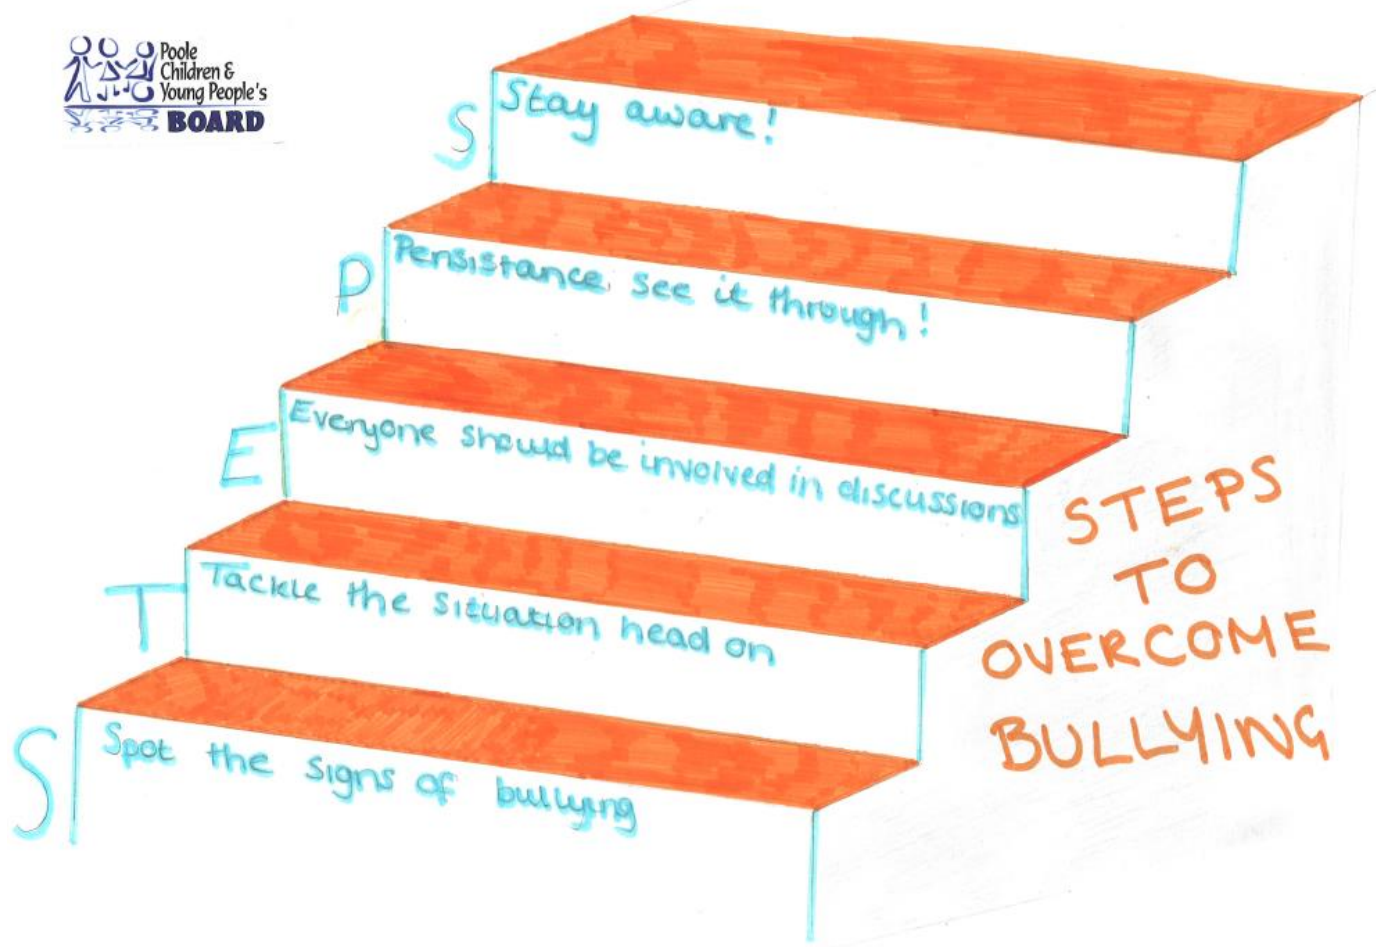 Poole
Children &
Young People's
BOARD
S
Stay aware!
P
Persistance, see it through!
E
Everyone should be involved in discussions
T
Tackle the situation head on
S
Spot the signs of bullying
STEPS
TO
OVERCOME
BULLYING